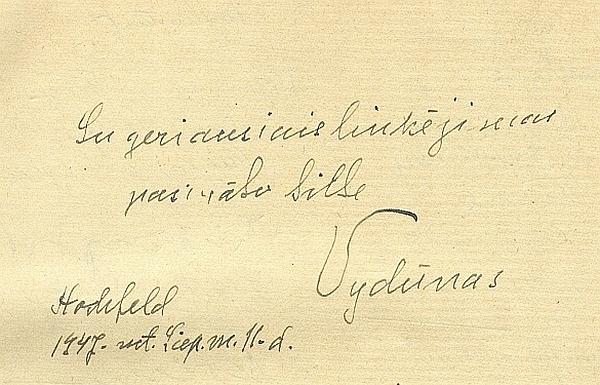 Su geriausiais linkėjimais
pasirašo šitke
Vydūnas
Hochfeld
1947. mt. Liep. m. 11. d.